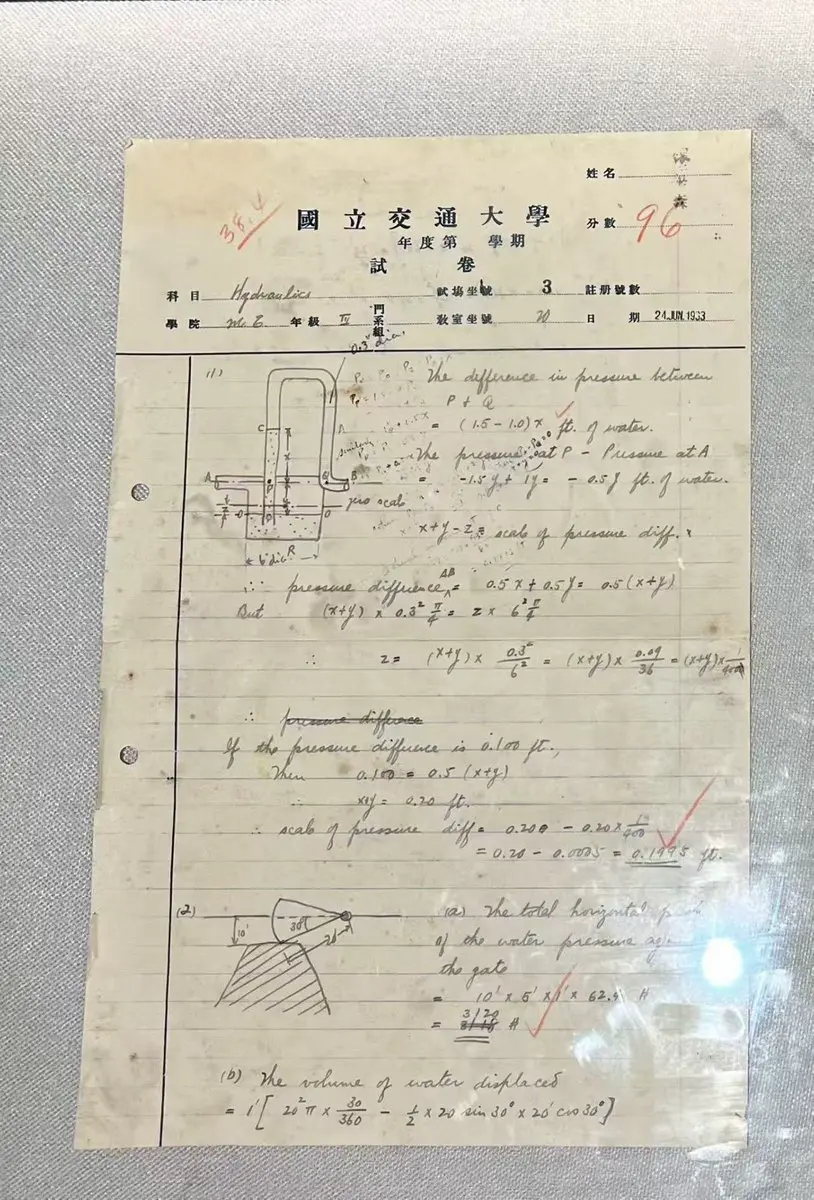 姓名 森
38.4
國立交通大學
分數 96
年度第 學期
試卷
科目 Hydraulics 試場坐號 3 註册號數
學院 M.E. 年級 IV 門系組 教室坐號 20 日期 24.JUN.1933
(1)
0.3" dia.
The defference in pressure between
P + Q
= (1.5 - 1.0) x ft. of water.
The pressure at P - Pressure at A
= -1.5y + 1y = - 0.5y ft. of water.
C
A P Q B
zero scale
O O
x+y-z = scale of pressure diff.
6" dia
R
∴ pressure difference AB = 0.5x + 0.5y = 0.5(x+y)
But (x+y) × 0.3² π/4 = z × 6² π/4
∴ z = (x+y) × 0.3²/6² = (x+y) × 0.09/36 = (x+y) × 1/400
∴ pressure difference
If the pressure difference is 0.100 ft.,
Then 0.100 = 0.5 (x+y)
∴ x+y = 0.20 ft.
∴ scale of pressure diff = 0.200 - 0.20 × 1/400
= 0.20 - 0.0005 = 0.1995 ft.
(2)
10'
30°
20'
(a) The total horizontal
of the water pressure
the gate
= 10' × 5' × 1' × 62.4 #
= 3120 #
(b) The volume of water displaced
= 1' [ 20² π × 30/360 - 1/2 × 20 sin 30° × 20' cos 30° ]